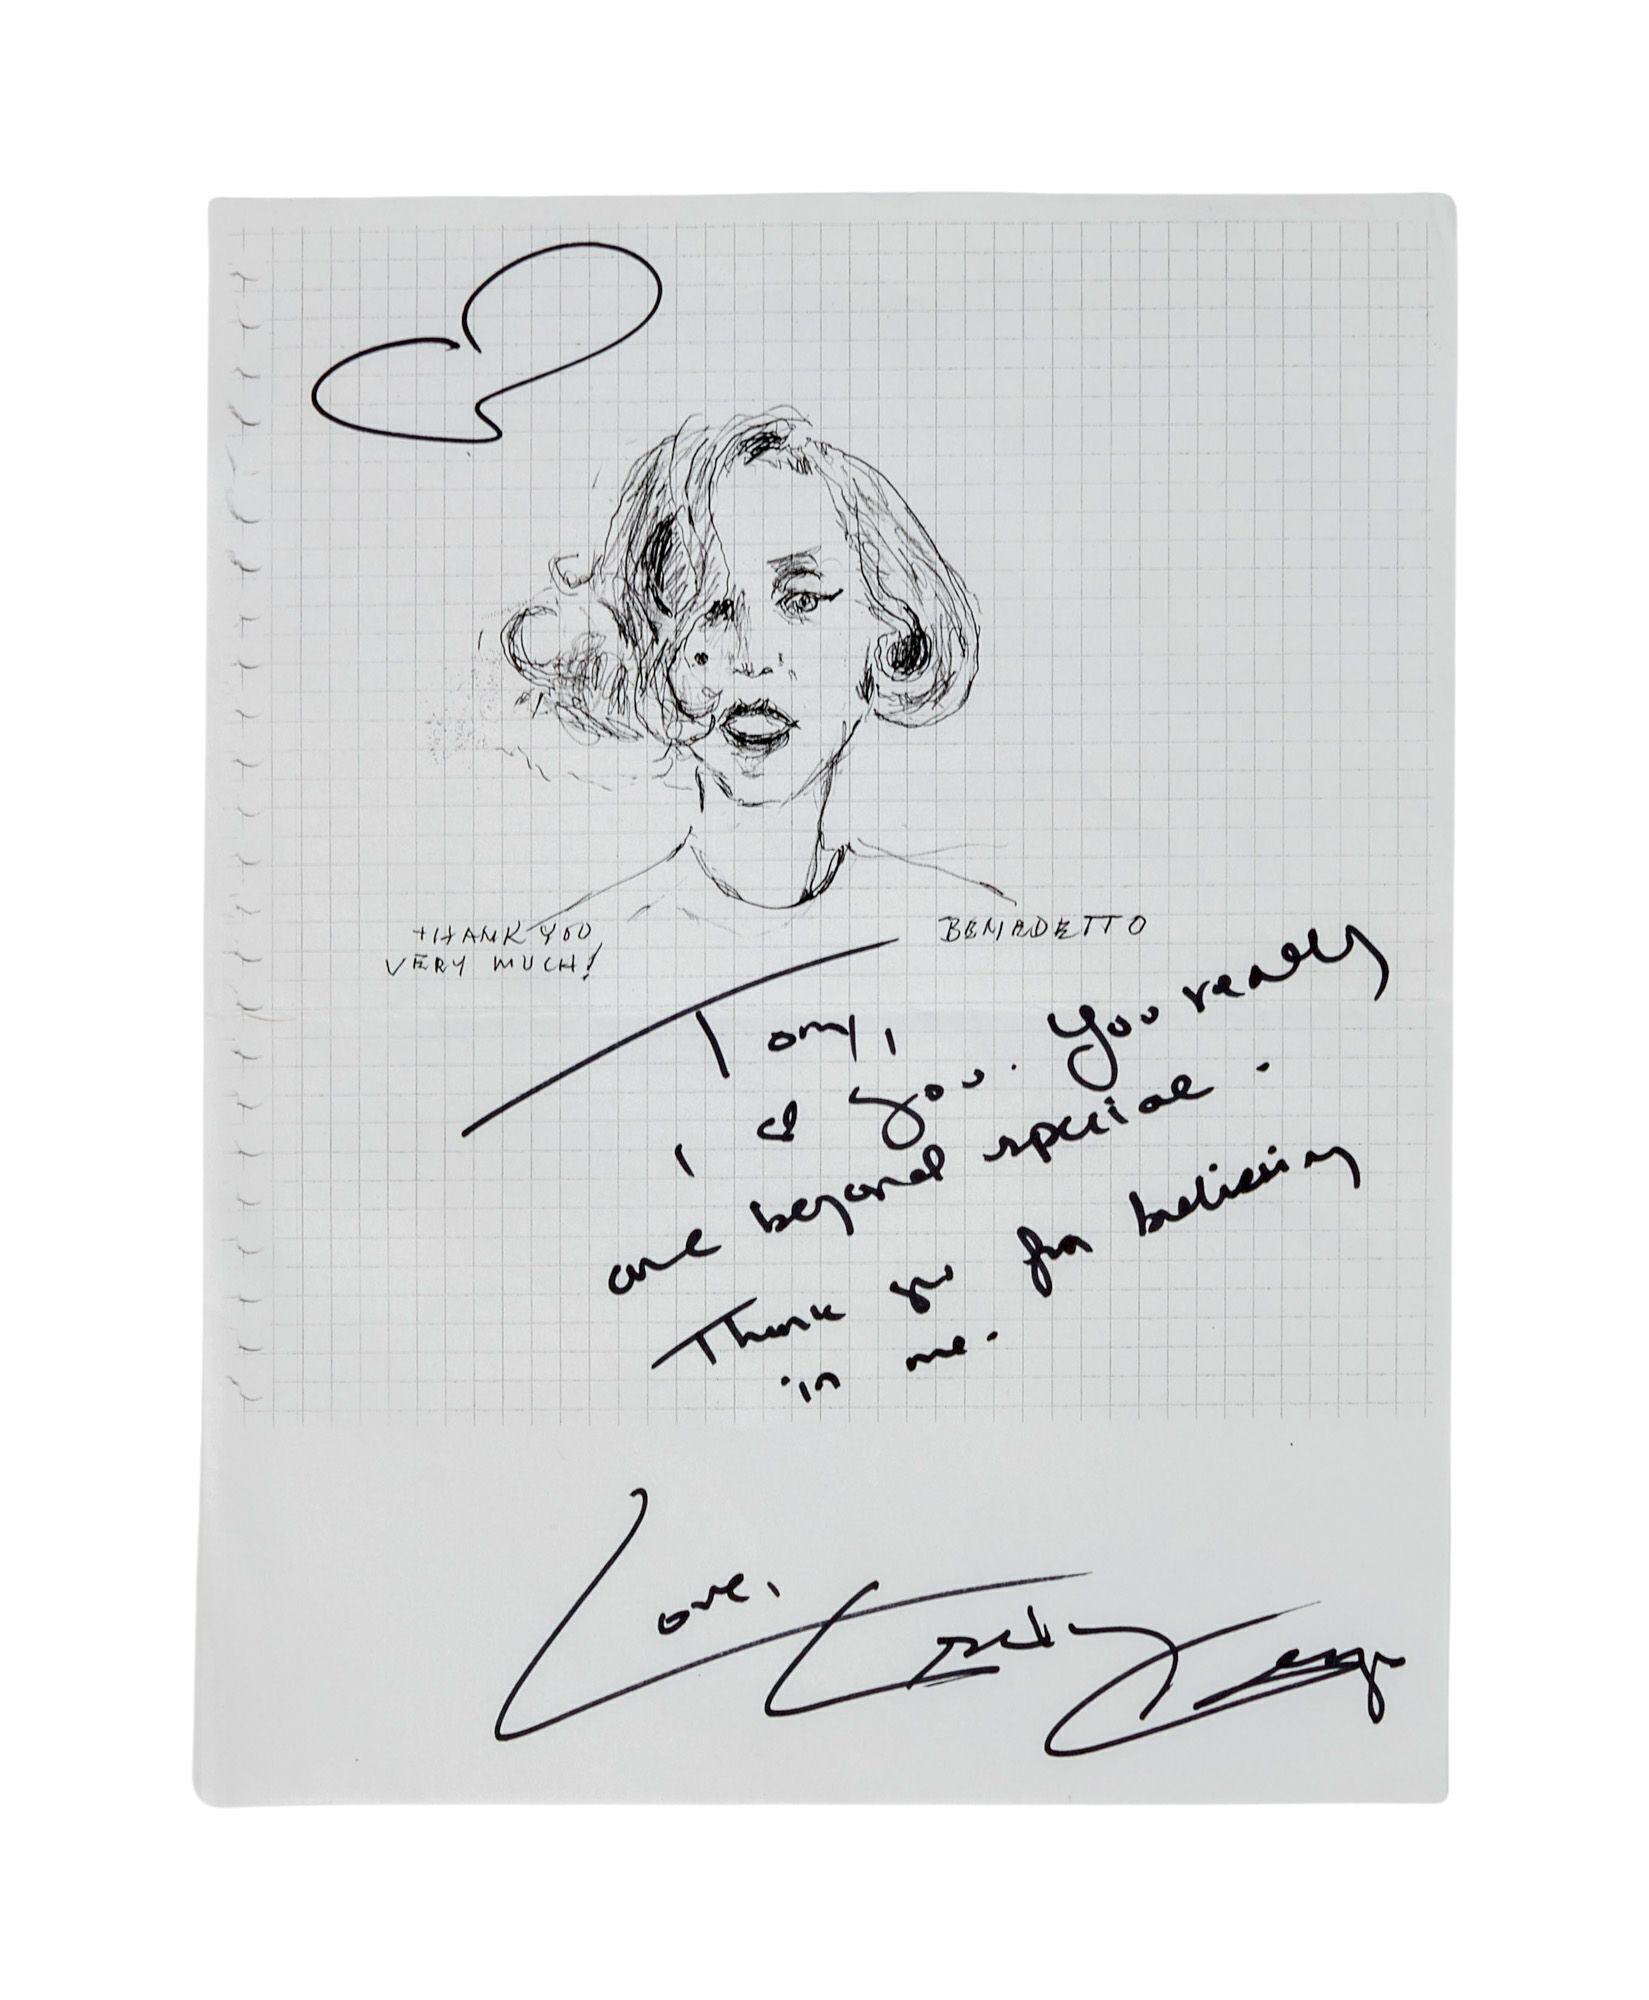 THANK YOU
VERY MUCH!
BENEDETTO
Tony,
I ♡ you. You really
are beyond special.
Thank you for believing
in me.
Love, Lady Gaga